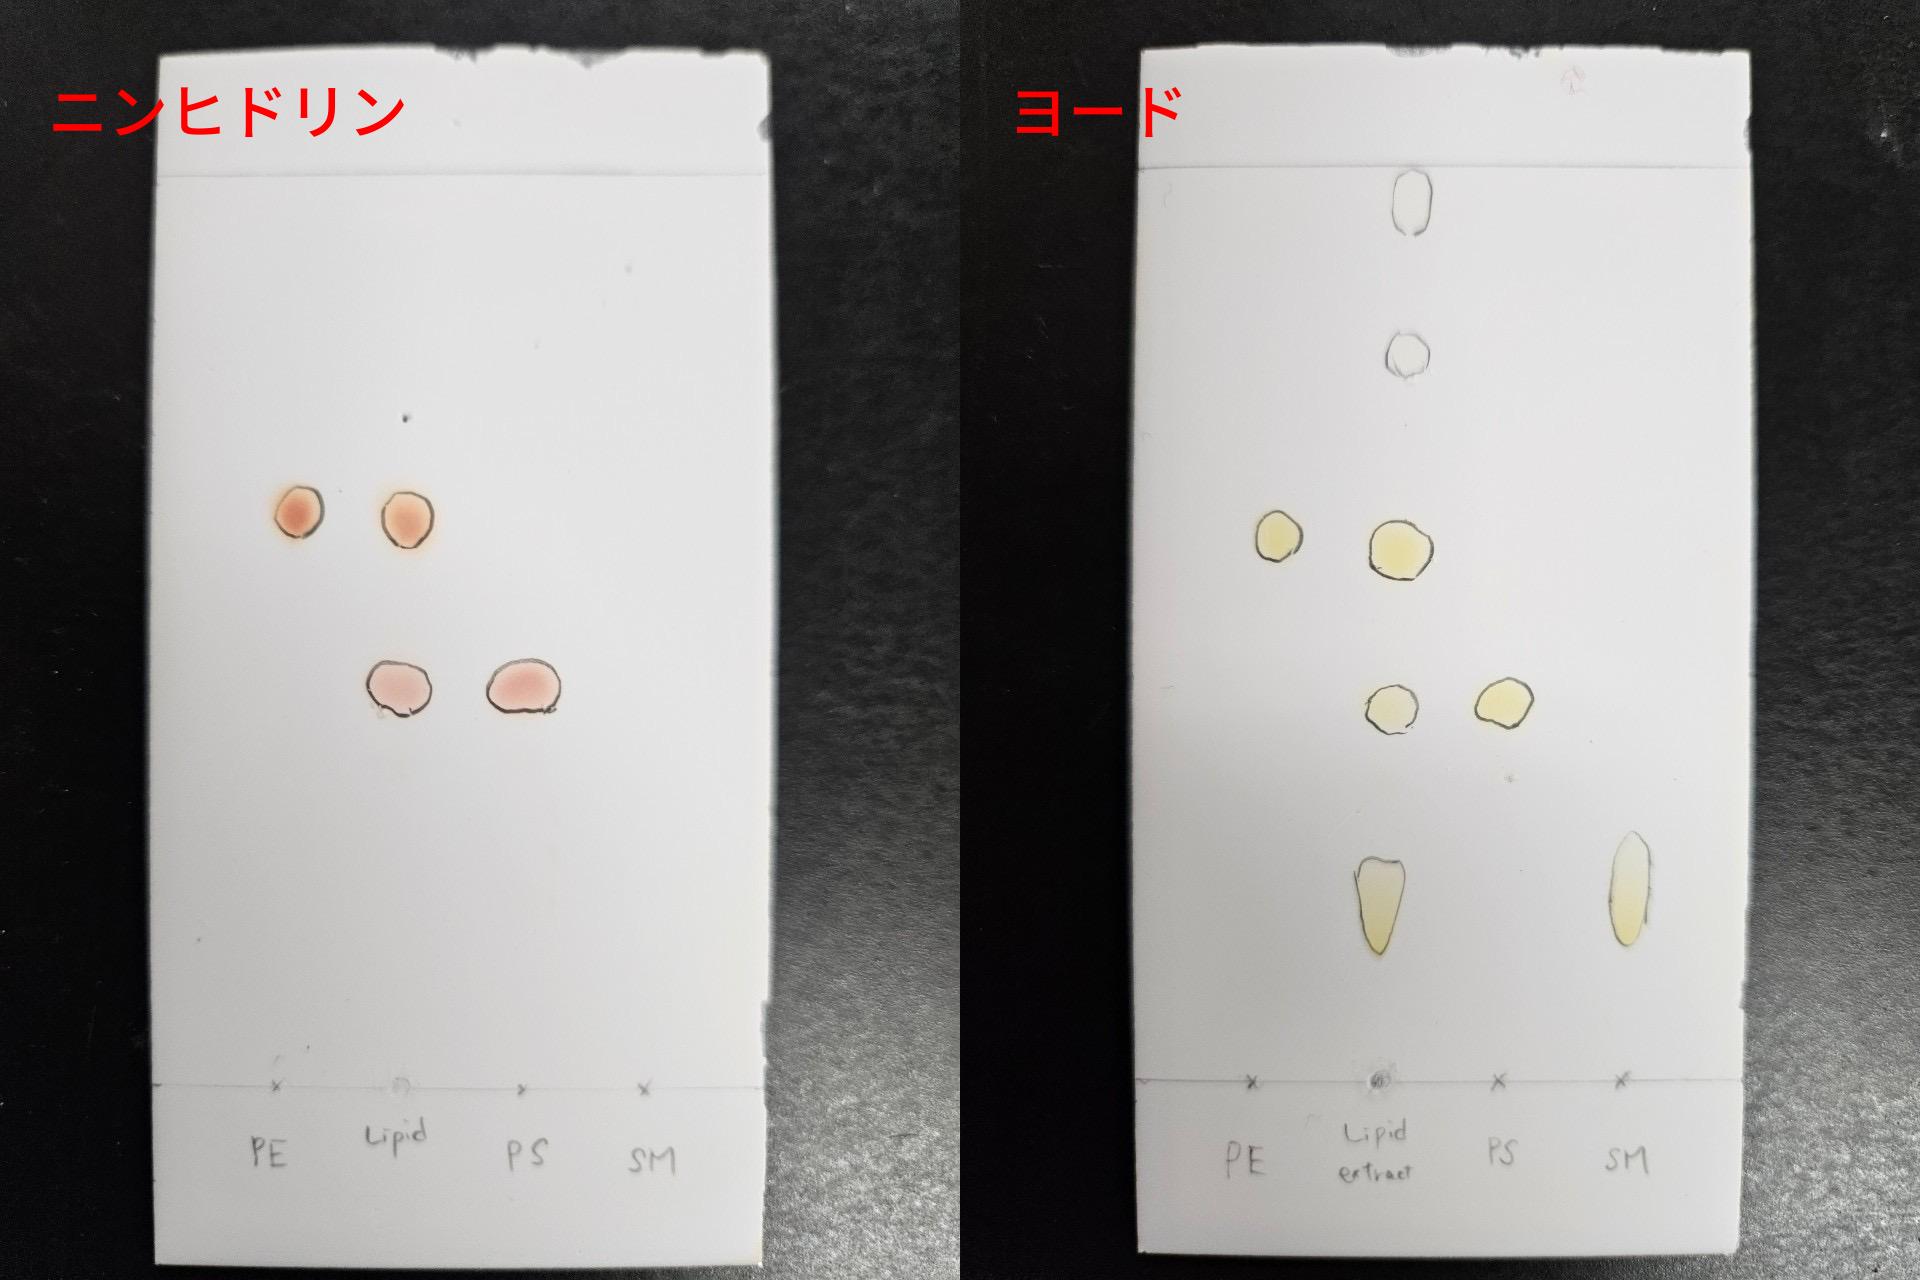 ニンヒドリン
PE
Lipid
PS
SM
ヨード
PE
Lipid
extract
PS
SM